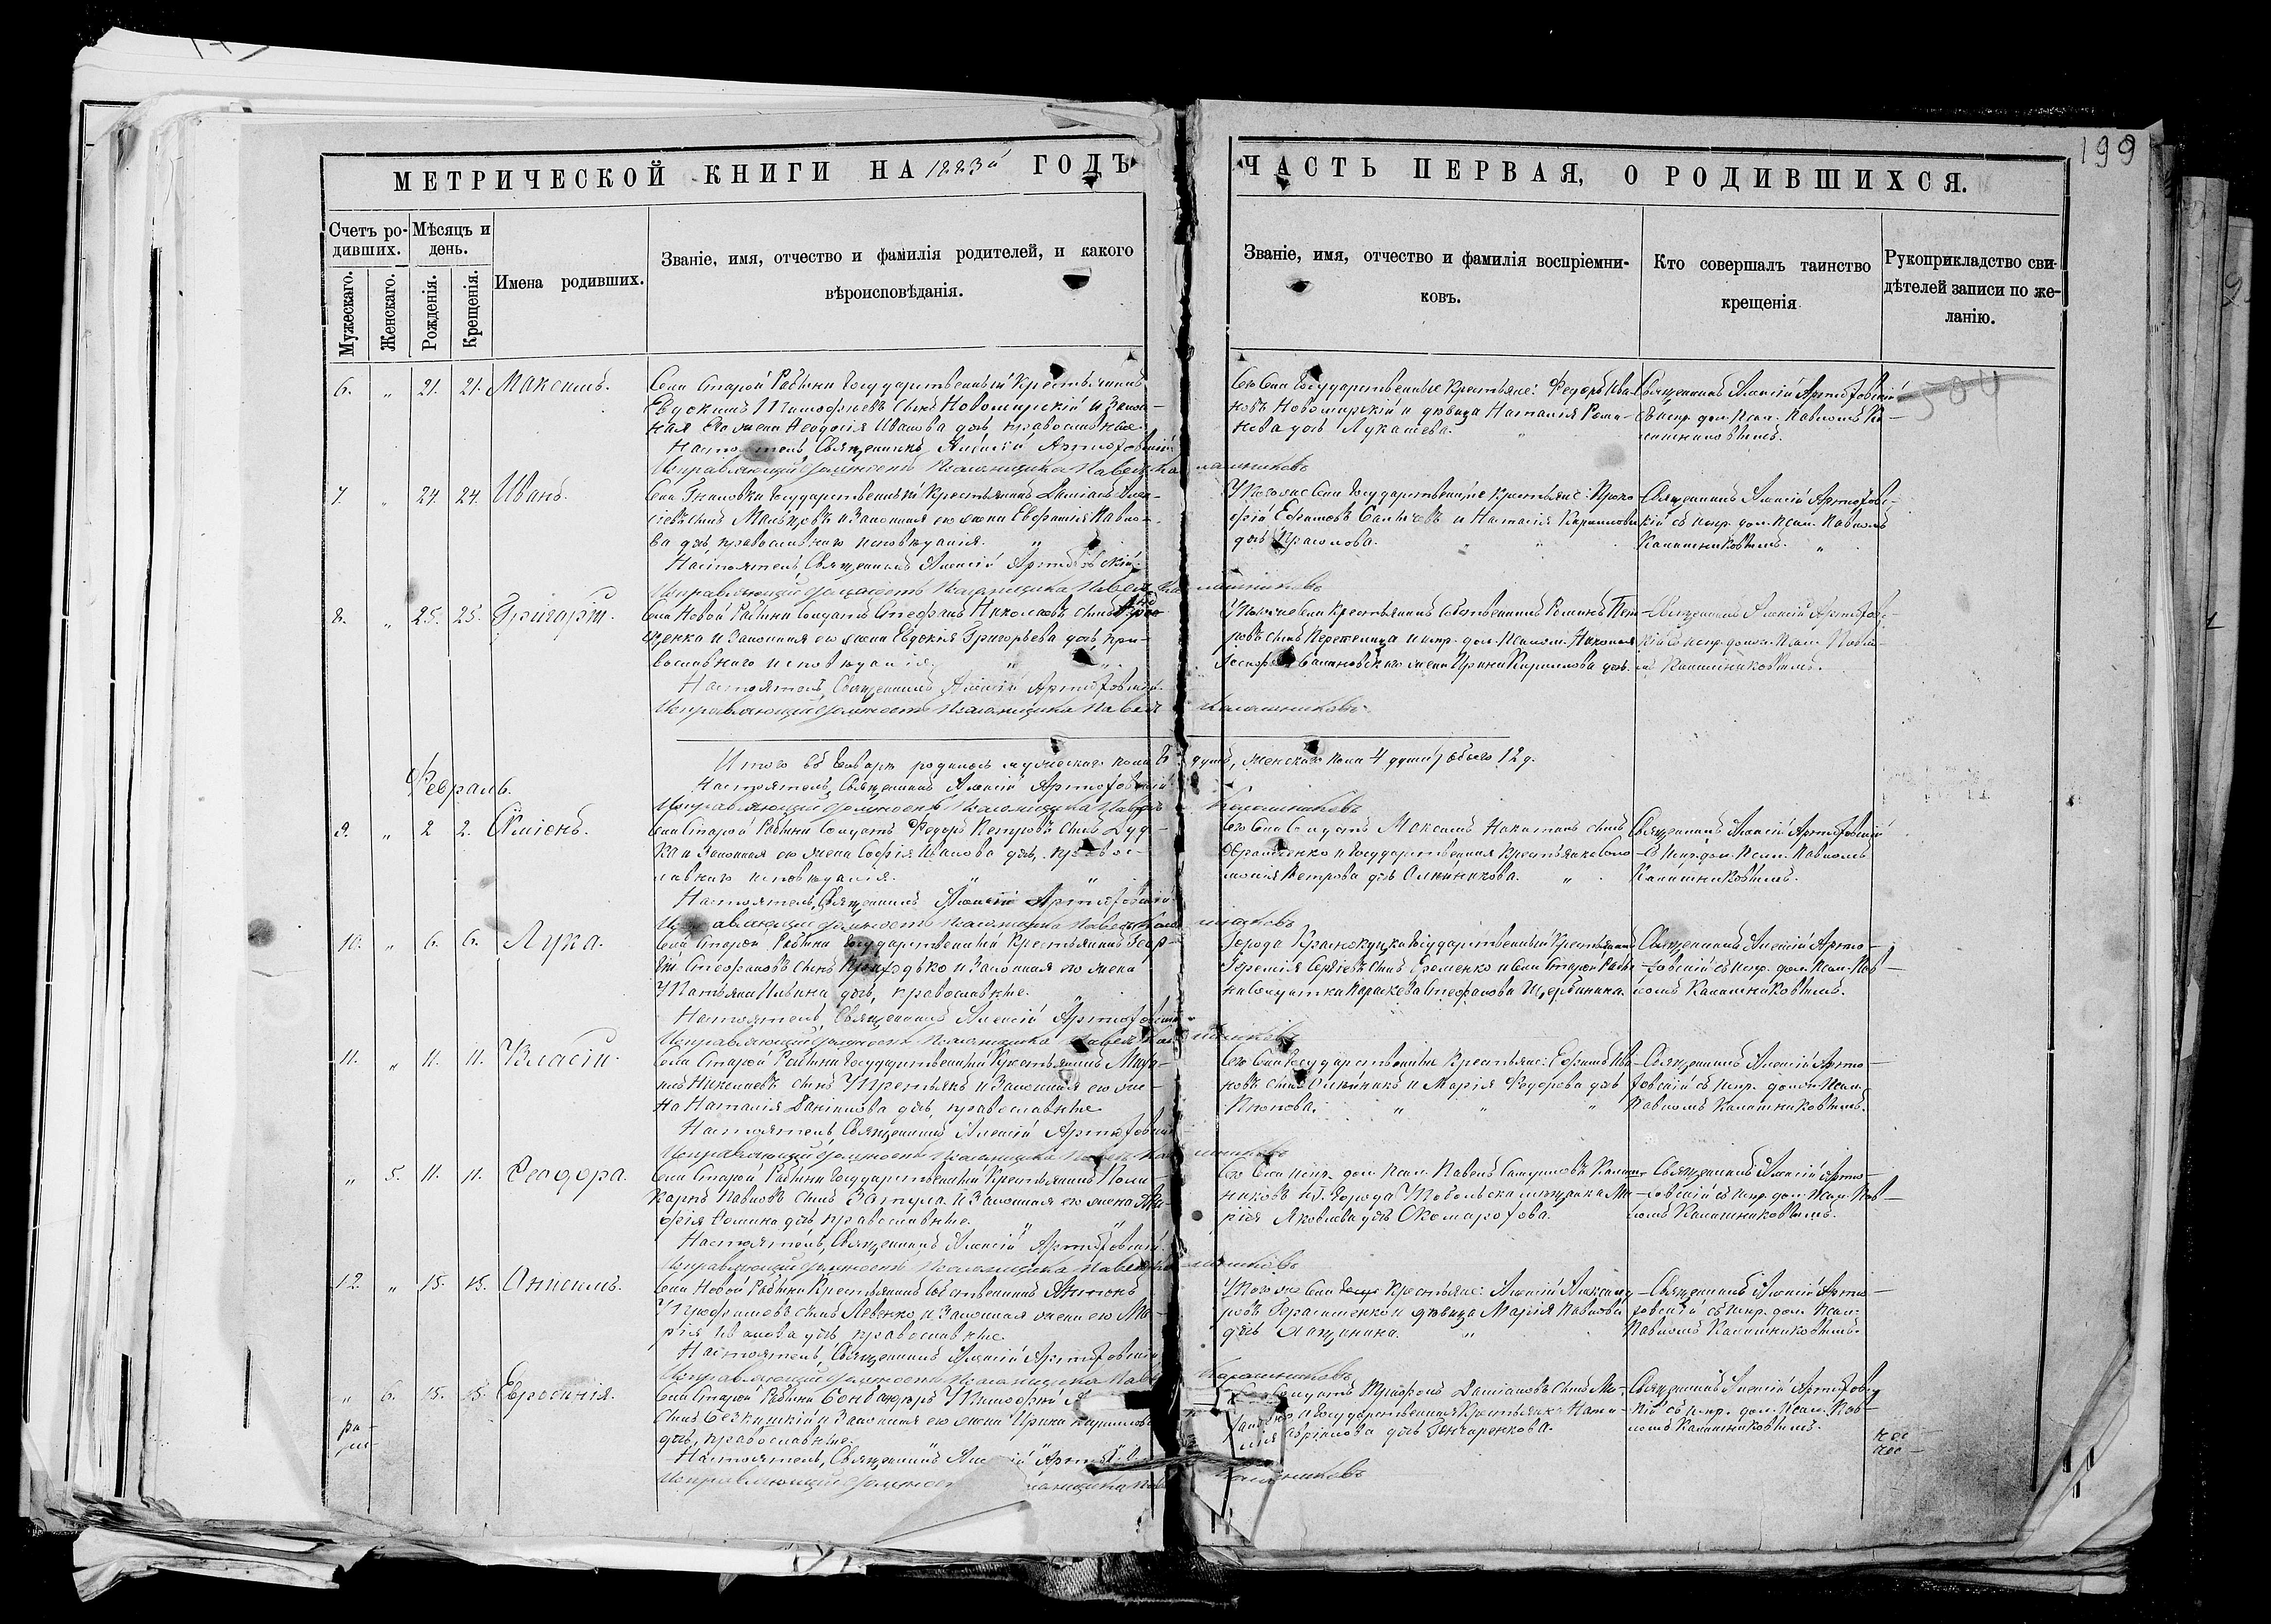 199
МЕТРИЧЕСКОЙ КНИГИ НА 1883й ГОДЪ
ЧАСТЬ ПЕРВАЯ, О РОДИВШИХСЯ.
Счетъ ро-
дивших.
Мѣсяцъ и
день.
Мужескаго.
Женскаго.
Рожденія.
Крещенія.
Имена родивших.
Званіе, имя, отчество и фамилія родителей, и какого
вѣроисповѣданія.
Званіе, имя, отчество и фамилія воспріемни-
ковъ.
Кто совершалъ таинство
крещенія
Рукоприкладство сви-
дѣтелей записи по же-
ланію.
6. " 21. 21. Максимъ.
Села Старой Рябины Государственный Крестьянинъ
Евдокимъ Тимофѣевъ сынъ Новомирскій и Закон-
ная его жена Ѳеодосія Иванова дочь, православные.
Настоятель, Священникъ Алексій Артюховскій
Исправляющій должность Псаломщика Павелъ Калашниковъ
Того Села Государственные Крестьяне: Ѳедоръ Ива-
новъ Новомирскій и дѣвица Наталія Рома-
нова дочь Лукашева.
Священникъ Алексій Артюховскій
съ испр. дол. Псал. Павломъ Ка-
лашниковымъ.
504
7. " 24. 24. Иванъ.
Села Государственный Крестьянинъ Даміанъ Алек-
сіевъ сынъ и Законная его жена Евфросинія Павло-
ва дочь, православнаго исповѣданія. "
Настоятель, Священникъ Алексій Артюховскій.
Исправляющій должность Псаломщика Павелъ Калашниковъ
Того же Села Государственные Крестьяне: Проко-
фій Ефимовъ и Наталія Кириллова
дочь
Священникъ Алексій Артюховс-
кій съ испр. дол. Псал. Павломъ
Калашниковымъ. "
8. " 25. 25. Григорій.
Села Новой Рябины Солдатъ Стефанъ Николаевъ сынъ
и Законная его жена Евдокія Григорьева дочь, пра-
вославнаго исповѣданія. " "
Настоятель, Священникъ Алексій Артюховскій.
Исправляющій должность Псаломщика Павелъ Калашниковъ
Того же Села Крестьянинъ собственникъ Романъ Пет-
ровъ сынъ и испр. дол. Псалом. Николая
жена Ирина Кириллова дочь.
Священникъ Алексій Артюховс-
кій съ испр. должн. Псал. Павло-
мъ Калашниковымъ.
Итого въ Январѣ родилось мужескаго пола 8 душъ, женскаго пола 4 души, обоего 12 д.
Настоятель, Священникъ Алексій Артюховскій
Исправляющій должность Псаломщика Павелъ Калашниковъ
Февраль.
9. " 2 2. Симеонъ.
Села Старой Рябины Солдатъ Ѳедоръ Петровъ сынъ Дуд-
ка и Законная его жена Софія Иванова дочь, правос-
лавнаго исповѣданія. " "
Настоятель, Священникъ Алексій Артюховскій.
Исправляющій должность Псаломщика Павелъ Калашниковъ
Того Села Солдатъ Максимъ Никитинъ сынъ
и Государственная Крестьянка Соло-
монія Петрова дочь Олейникова. "
Священникъ Алексій Артюховскій
съ испр. дол. Псал. Павломъ
Калашниковымъ.
10. " 6. 6. Лука.
Села Старой Рябины Государственный Крестьянинъ Геор-
гій Стефановъ сынъ Приходько и Законная его жена
Татьяна Ильина дочь, православные.
Настоятель, Священникъ Алексій Артюховскій
Исправляющій должность Псаломщика Павелъ Калашниковъ
Города Краснокутска Государственный Крестьянинъ
Іеремія Сергіевъ сынъ Еременко и Села Старой Ряби-
ны Солдатка Параскева Стефанова Щербинина.
Священникъ Алексій Артю-
ховскій съ испр. дол. Псал. Пав-
ломъ Калашниковымъ.
11. " 11. 11. Власій.
Села Старой Рябины Государственный Крестьянинъ Миха-
илъ Николаевъ сынъ Третьякъ и Законная его же-
на Наталія Даніилова дочь, православные.
Настоятель, Священникъ Алексій Артюховскій
Исправляющій должность Псаломщика Павелъ Калашниковъ
Того Села Государственные Крестьяне: Ефимъ Ива-
новъ сынъ Олейникъ и Марія Ѳедорова дочь
Попова. " " "
Священникъ Алексій Артю-
ховскій съ испр. должн. Псал.
Павломъ Калашниковымъ.
" 5. 11. 11. Ѳеодора.
Села Старой Рябины Государственный Крестьянинъ Поли-
карпъ Павловъ сынъ Затула и Законная его жена
Ѳомина дочь, православные.
Настоятель, Священникъ Алексій Артюховскій.
Исправляющій должность Псаломщика Павелъ Калашниковъ
Того Села испр. дол. Псал. Павелъ Самуиловъ Калаш-
никовъ и Города Тобольска мѣщанка Ма-
рія Яковлева дочь
Священникъ Алексій Артю-
ховскій съ испр. дол. Псал. Пав-
ломъ Калашниковымъ.
12. " 15. 15. Онисимъ.
Села Новой Рябины Крестьянинъ Собственникъ Антонъ
Трофимовъ сынъ Левенко, и Законная жена его Ма-
рія Иванова дочь, православные.
Настоятель, Священникъ Алексій Артюховскій
Исправляющій должность Псаломщика Павелъ Калашниковъ
Того же Села Крестьяне: Алексій Александ-
ровъ Герасименко и дѣвица Марія Павлова
дочь
Священникъ Алексій Артю-
ховскій съ испр. дол. Псал.
Павломъ Калашниковымъ.
" 6. 15. 15. Евросинія.
Села Старой Рябины Бонбандиръ Тимофей
сынъ и Законная его жена Ирина Кириллова
дочь, православные.
Настоятель, Священникъ
Исправляющій Калашниковъ
Солдатъ Трифонъ Даміановъ сынъ
и Государственная Крестьянка Ната-
лія Гавріилова дочь Гончаренкова.
Священникъ Алексій Артюховс-
кій съ испр. дол. Псал. Пав-
ломъ Калашниковымъ.